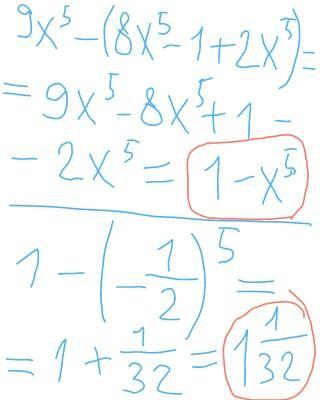 9x⁵-(8x⁵-1+2x⁵)=
=9x⁵-8x⁵+1-
-2x⁵=1-x⁵
1-(-1/2)⁵=
=1+1/32=1 1/32